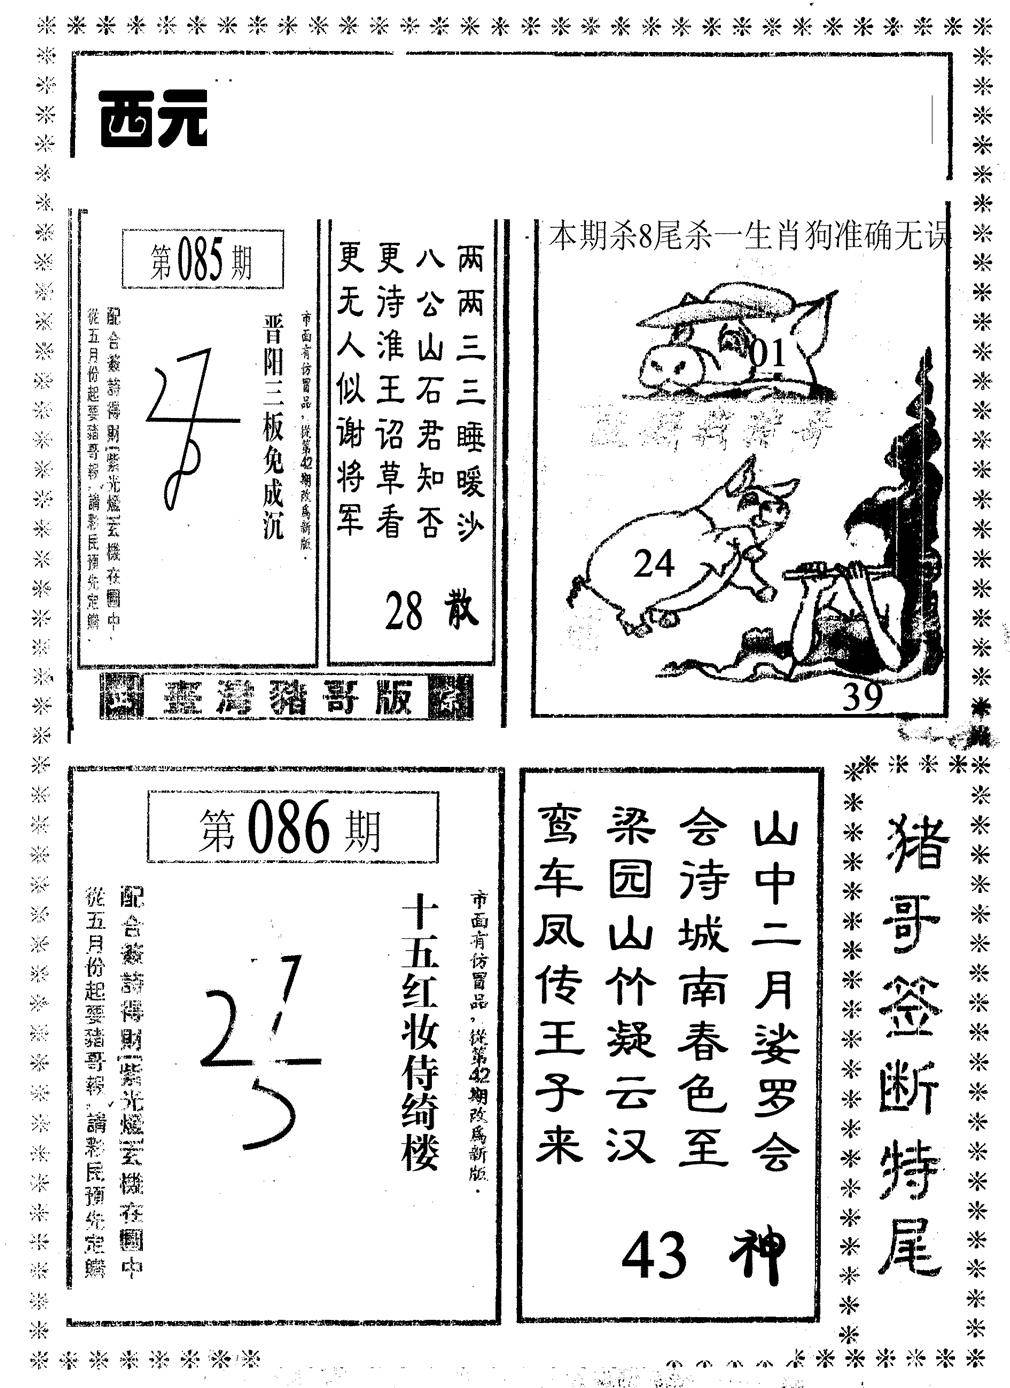 西元
第085期
市面有仿冒品,從第42期改為新版.
晋阳三板免成沉
配合簽詩得財(紫光燈)玄機在圖中,
從五月份起要豬哥報,請彩民預先定購.
两两三三睡暖沙
八公山石君知否
更诗淮王诏草看
更无人似谢将军
28 散
臺灣豬哥版
本期杀8尾杀一生肖狗准确无误
01
24
39
第086期
市面有仿冒品,從第42期改為新版.
十五红妆侍绮楼
配合簽詩得財(紫光燈)玄機在圖中
從五月份起要豬哥報,請彩民預先定購
山中二月娑罗会
会待城南春色至
梁园山竹凝云汉
鸾车凤传王子来
43 神
猪哥签断特尾